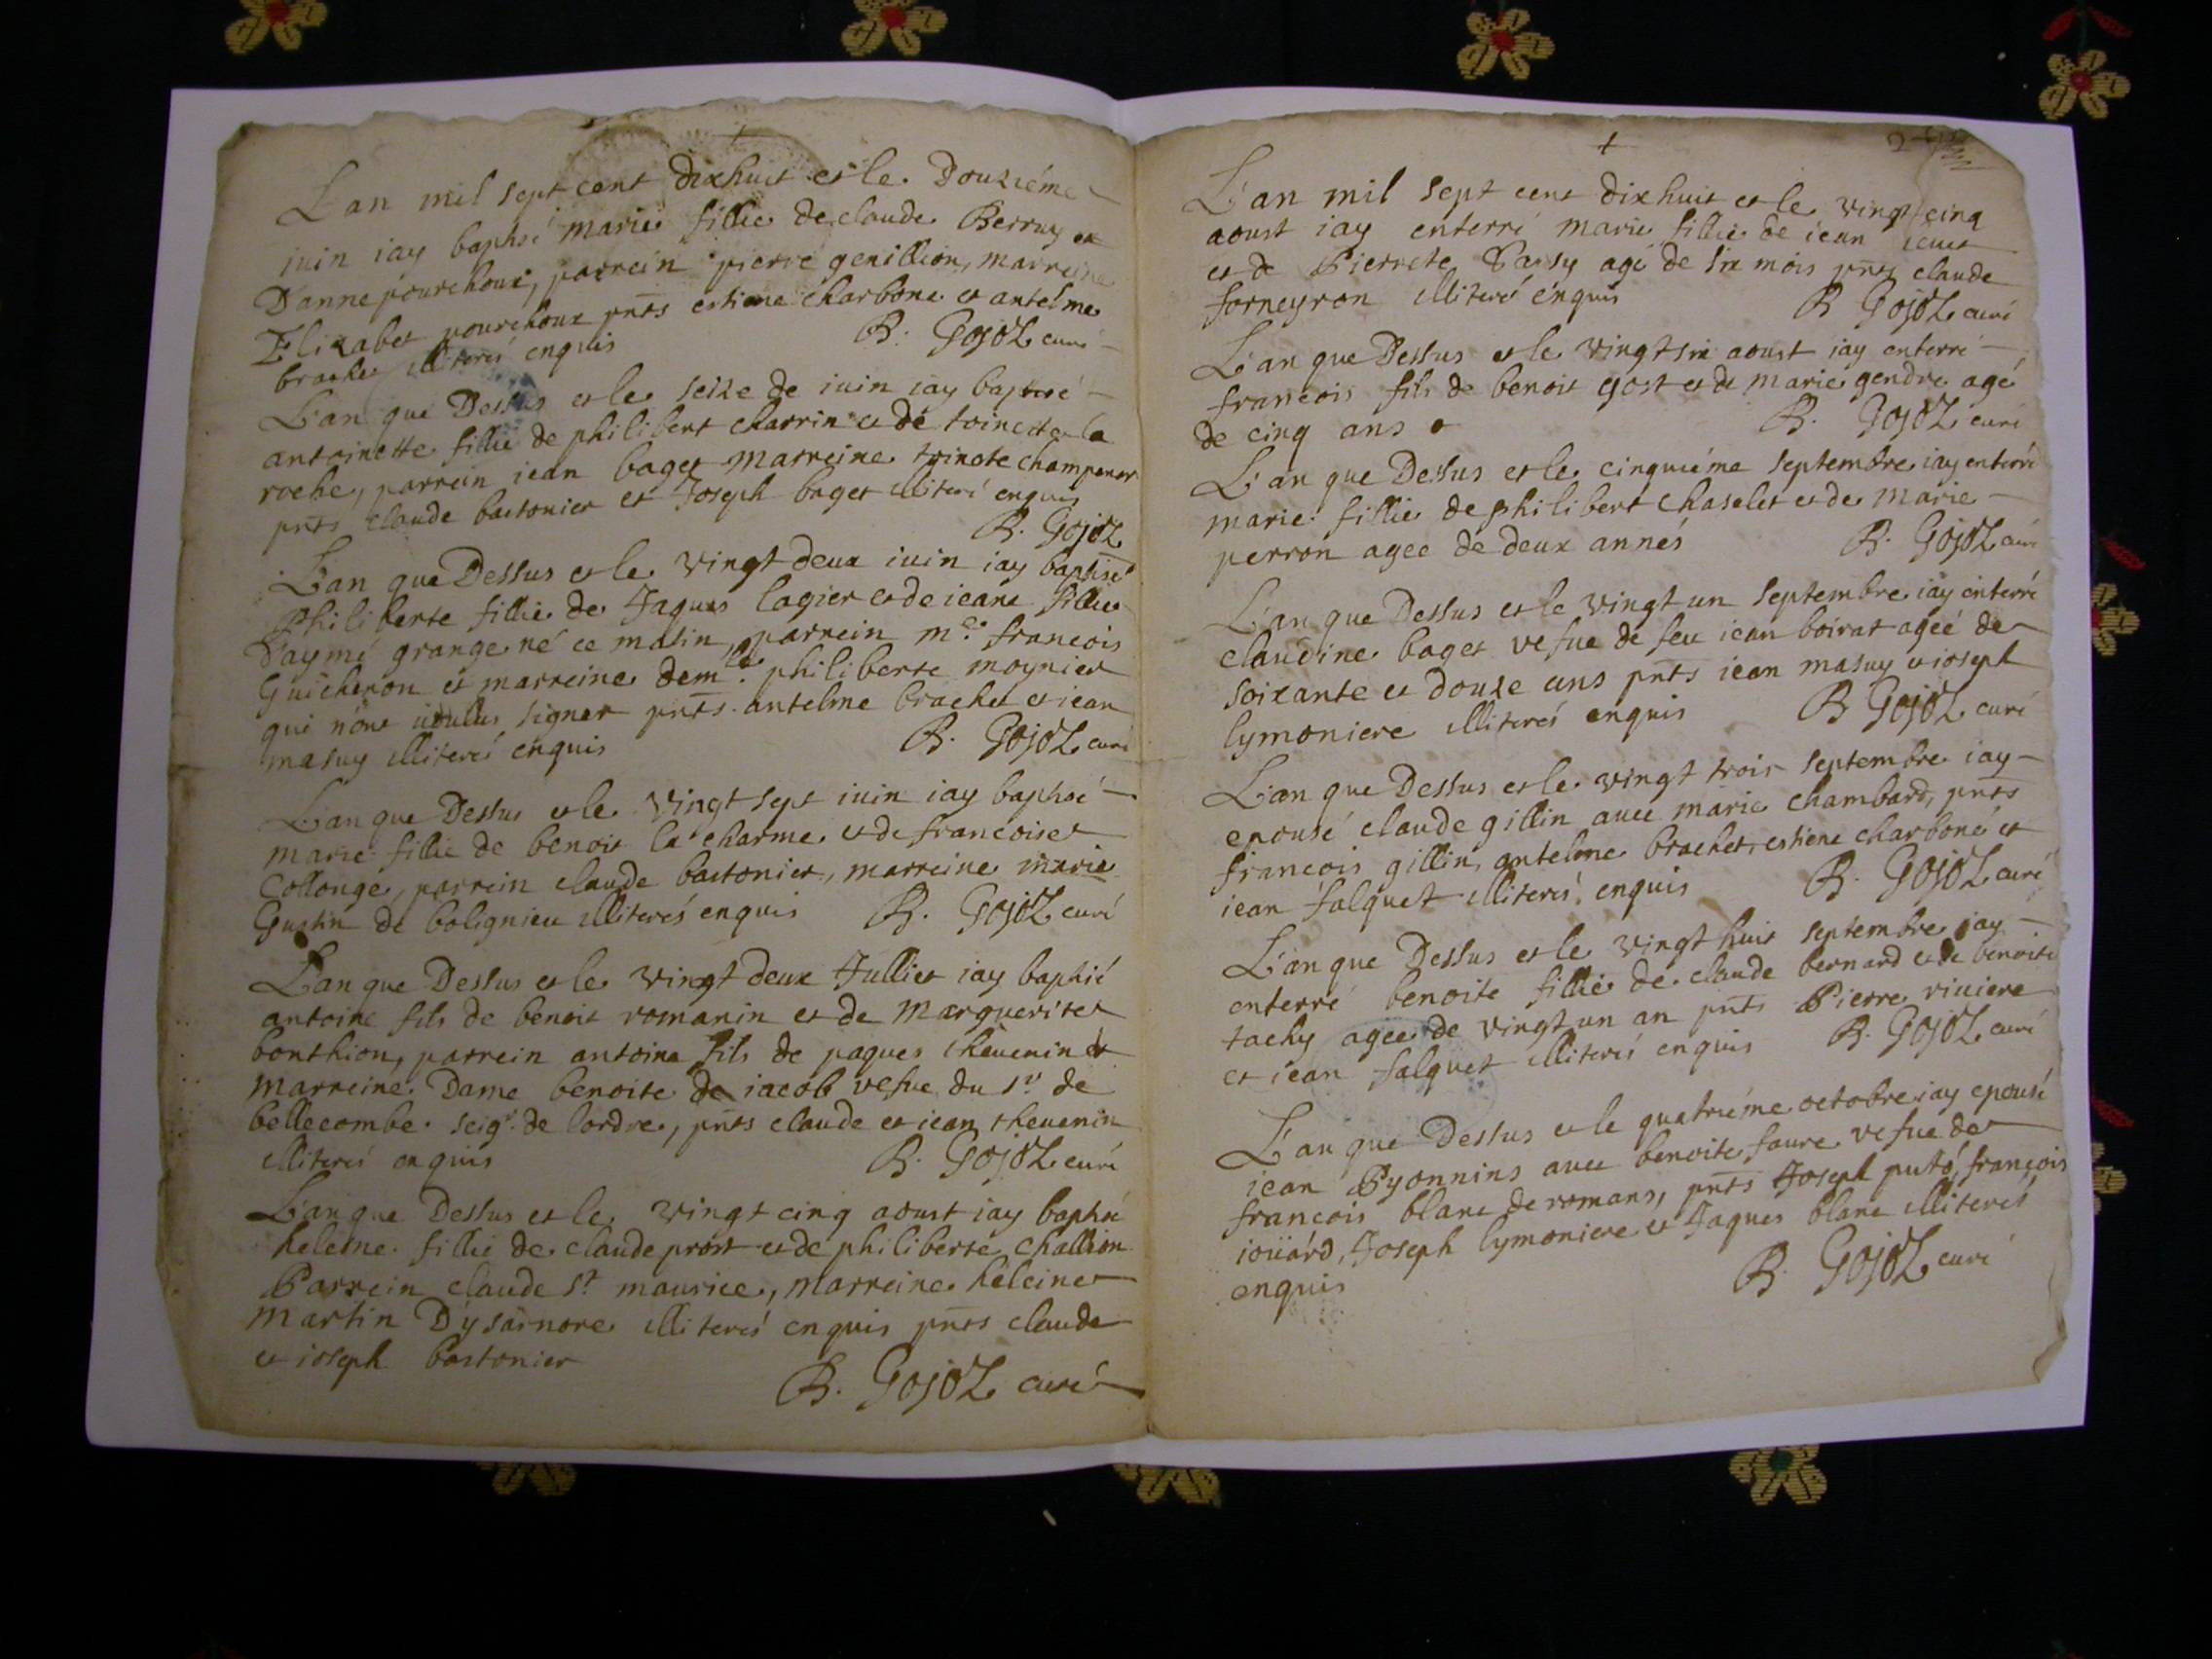 +
Lan mil sept cent dixhuit et le Douziéme
juin iay baptisé marie fillie de claude Berruy et
D'anne pourchoux, parrein pierre genillion, marreine
Elizabet pourchoux pnts estiene charbone et antelme
brachet illiterés enquis B. Gojoz curé
L'an que Dessus et le seize de iuin iay baptisé
antoinette fillie de philibert charrin et de toinette la
roche, parrein iean baget marreine toinete champanor
pnts claude bastonier et Joseph baget illiteré enquis
B. Gojoz
L'an que Dessus et le vingt deux iuin iay baptisé
philiberte fillie de Jaques lagier et de ieane fillie
D'aymé grange né ce matin, parrein mre francois
Guicheron et marreine demlle philiberte moynier
qui n'ont voulus signer pnts antelme brachet et iean
masuy illiterés enquis B. Gojoz curé
L'an que Dessus et le vingt sept iuin iay baptisé
marie fillie de benoit la charme et de francoise
Collonge, parrein claude bastonier, marreine marie
Gustin de bolignieu illiterés enquis B. Gojoz curé
L'an que Dessus et le vingt deux Jullet iay baptisé
antoine fils de benoit romanin et de Marguerite
bonthion, parrein antoine fils de paques thevenin et
marreine Dame benoite de iacob vefve du sr de
bellecombe seigr de lordre, pnts claude et iean thevenin
illiterés enquis B. Gojoz curé
L'an que Dessus et le vingt cinq aoust iay baptisé
heleine fillie de claude prost et de philiberte challion
Parrein claude st maurice, marreine heleine
martin D'ysarnore illiterés enquis pnts claude
et ioseph bastonier
B. Gojoz curé
+
L'an mil sept cent dixhuit et le vingt cinq
aoust iay enterré marie fillie de iean
et de Pierrete Parsy agé de six mois pnts claude
forneyron illiteré enquis B Gojoz curé
L'an que Dessus et le vingt six aoust iay enterré
francois fils de benoit gost et de marie gendre agé
de cinq ans B. Gojoz curé
L'an que Dessus et le cinquiéme septembre iay enterré
marie fillie de philibert chaselet et de marie
perron agee de deux annés B. Gojoz curé
L'an que Dessus et le vingt un septembre iay enterré
claudine baget vefve de feu iean boirat ageé de
soixante et douze ans pnts iean masuy et ioseph
lymoniere illiterés enquis B Gojoz curé
L'an que Dessus et le vingt trois septembre iay
epousé claude gillin avec marie chambard, pnts
francois gillin, antelme brachet, estiene charboné et
iean falquet illiterés enquis B. Gojoz curé
L'an que Dessus et le vingt huit septembre iay
enterré benoite fillie de claude bernard et de benoite
tachy agee de vingt un an pnts Pierre riviere
et iean falquet illiterés enquis B. Gojoz curé
L'an que Dessus et le quatriéme octobre iay epousé
iean Pyonnins avec benoite faure vefve de
francois blanc de romans, pnts Joseph putó, françois
ioüard, Joseph lymoniere et Jaques blanc illiterés
enquis B. Gojoz curé